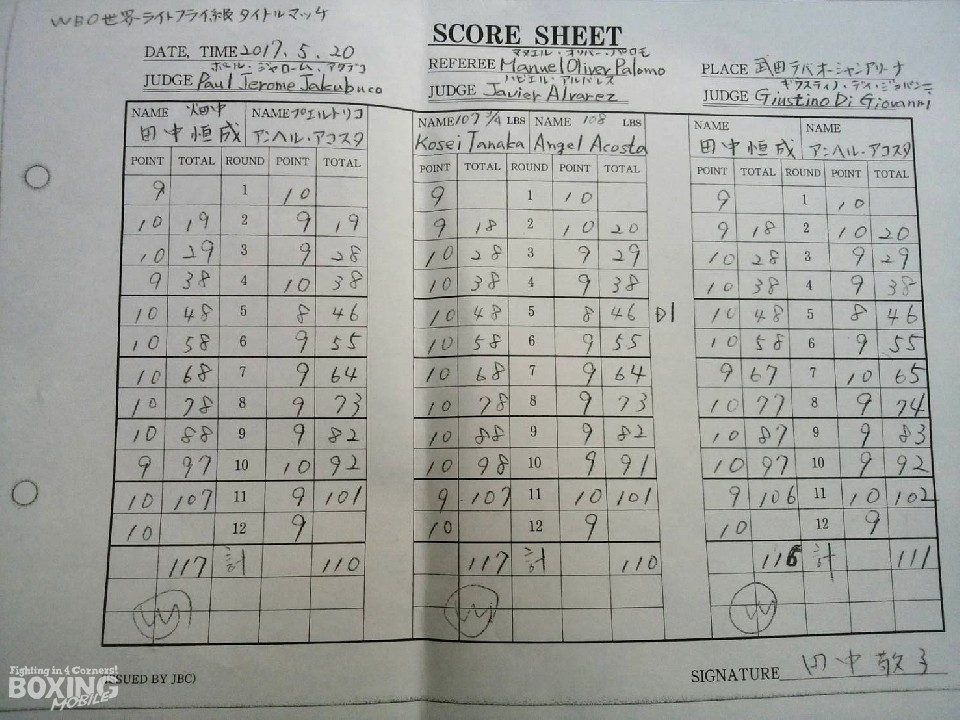 WBO世界ライトフライ級タイトルマッチ
SCORE SHEET
DATE, TIME 2017. 5. 20
マヌエル・オリバー・パロモ
REFEREE Manuel Oliver Palomo
PLACE 武田テバオーシャンアリーナ
JUDGE Paul Jerome Jakubuco
ハビエル・アルバレス
JUDGE Javier Alvarez
JUDGE Giustino Di Giovanni
NAME 畑中 NAME プエルトリコ NAME 107 3/4 LBS NAME 108 LBS NAME NAME
田中恒成 アンヘル・アコスタ Kosei Tanaka Angel Acosta 田中恒成 アンヘル・アコスタ
POINT TOTAL ROUND POINT TOTAL POINT TOTAL ROUND POINT TOTAL POINT TOTAL ROUND POINT TOTAL
9 1 10 9 1 10 9 1 10
10 19 2 9 19 9 18 2 10 20 9 18 2 10 20
10 29 3 9 28 10 28 3 9 29 10 28 3 9 29
9 38 4 10 38 10 38 4 9 38 10 38 4 9 38
10 48 5 8 46 10 48 5 8 46 D1 10 48 5 8 46
10 58 6 9 55 10 58 6 9 55 10 58 6 9 55
10 68 7 9 64 10 68 7 9 64 9 67 7 10 65
10 78 8 9 73 10 78 8 9 73 10 77 8 9 74
10 88 9 9 82 10 88 9 9 82 10 87 9 9 83
9 97 10 10 92 10 98 10 9 91 10 97 10 9 92
10 107 11 9 101 9 107 11 10 101 9 106 11 10 102
10 12 9 10 12 9 10 12 9
117 計 110 117 計 110 116 計 111
W W W
ISSUED BY JBC)
SIGNATURE 田中敬子
Fighting in 4 Corners!
BOXING
MOBILE